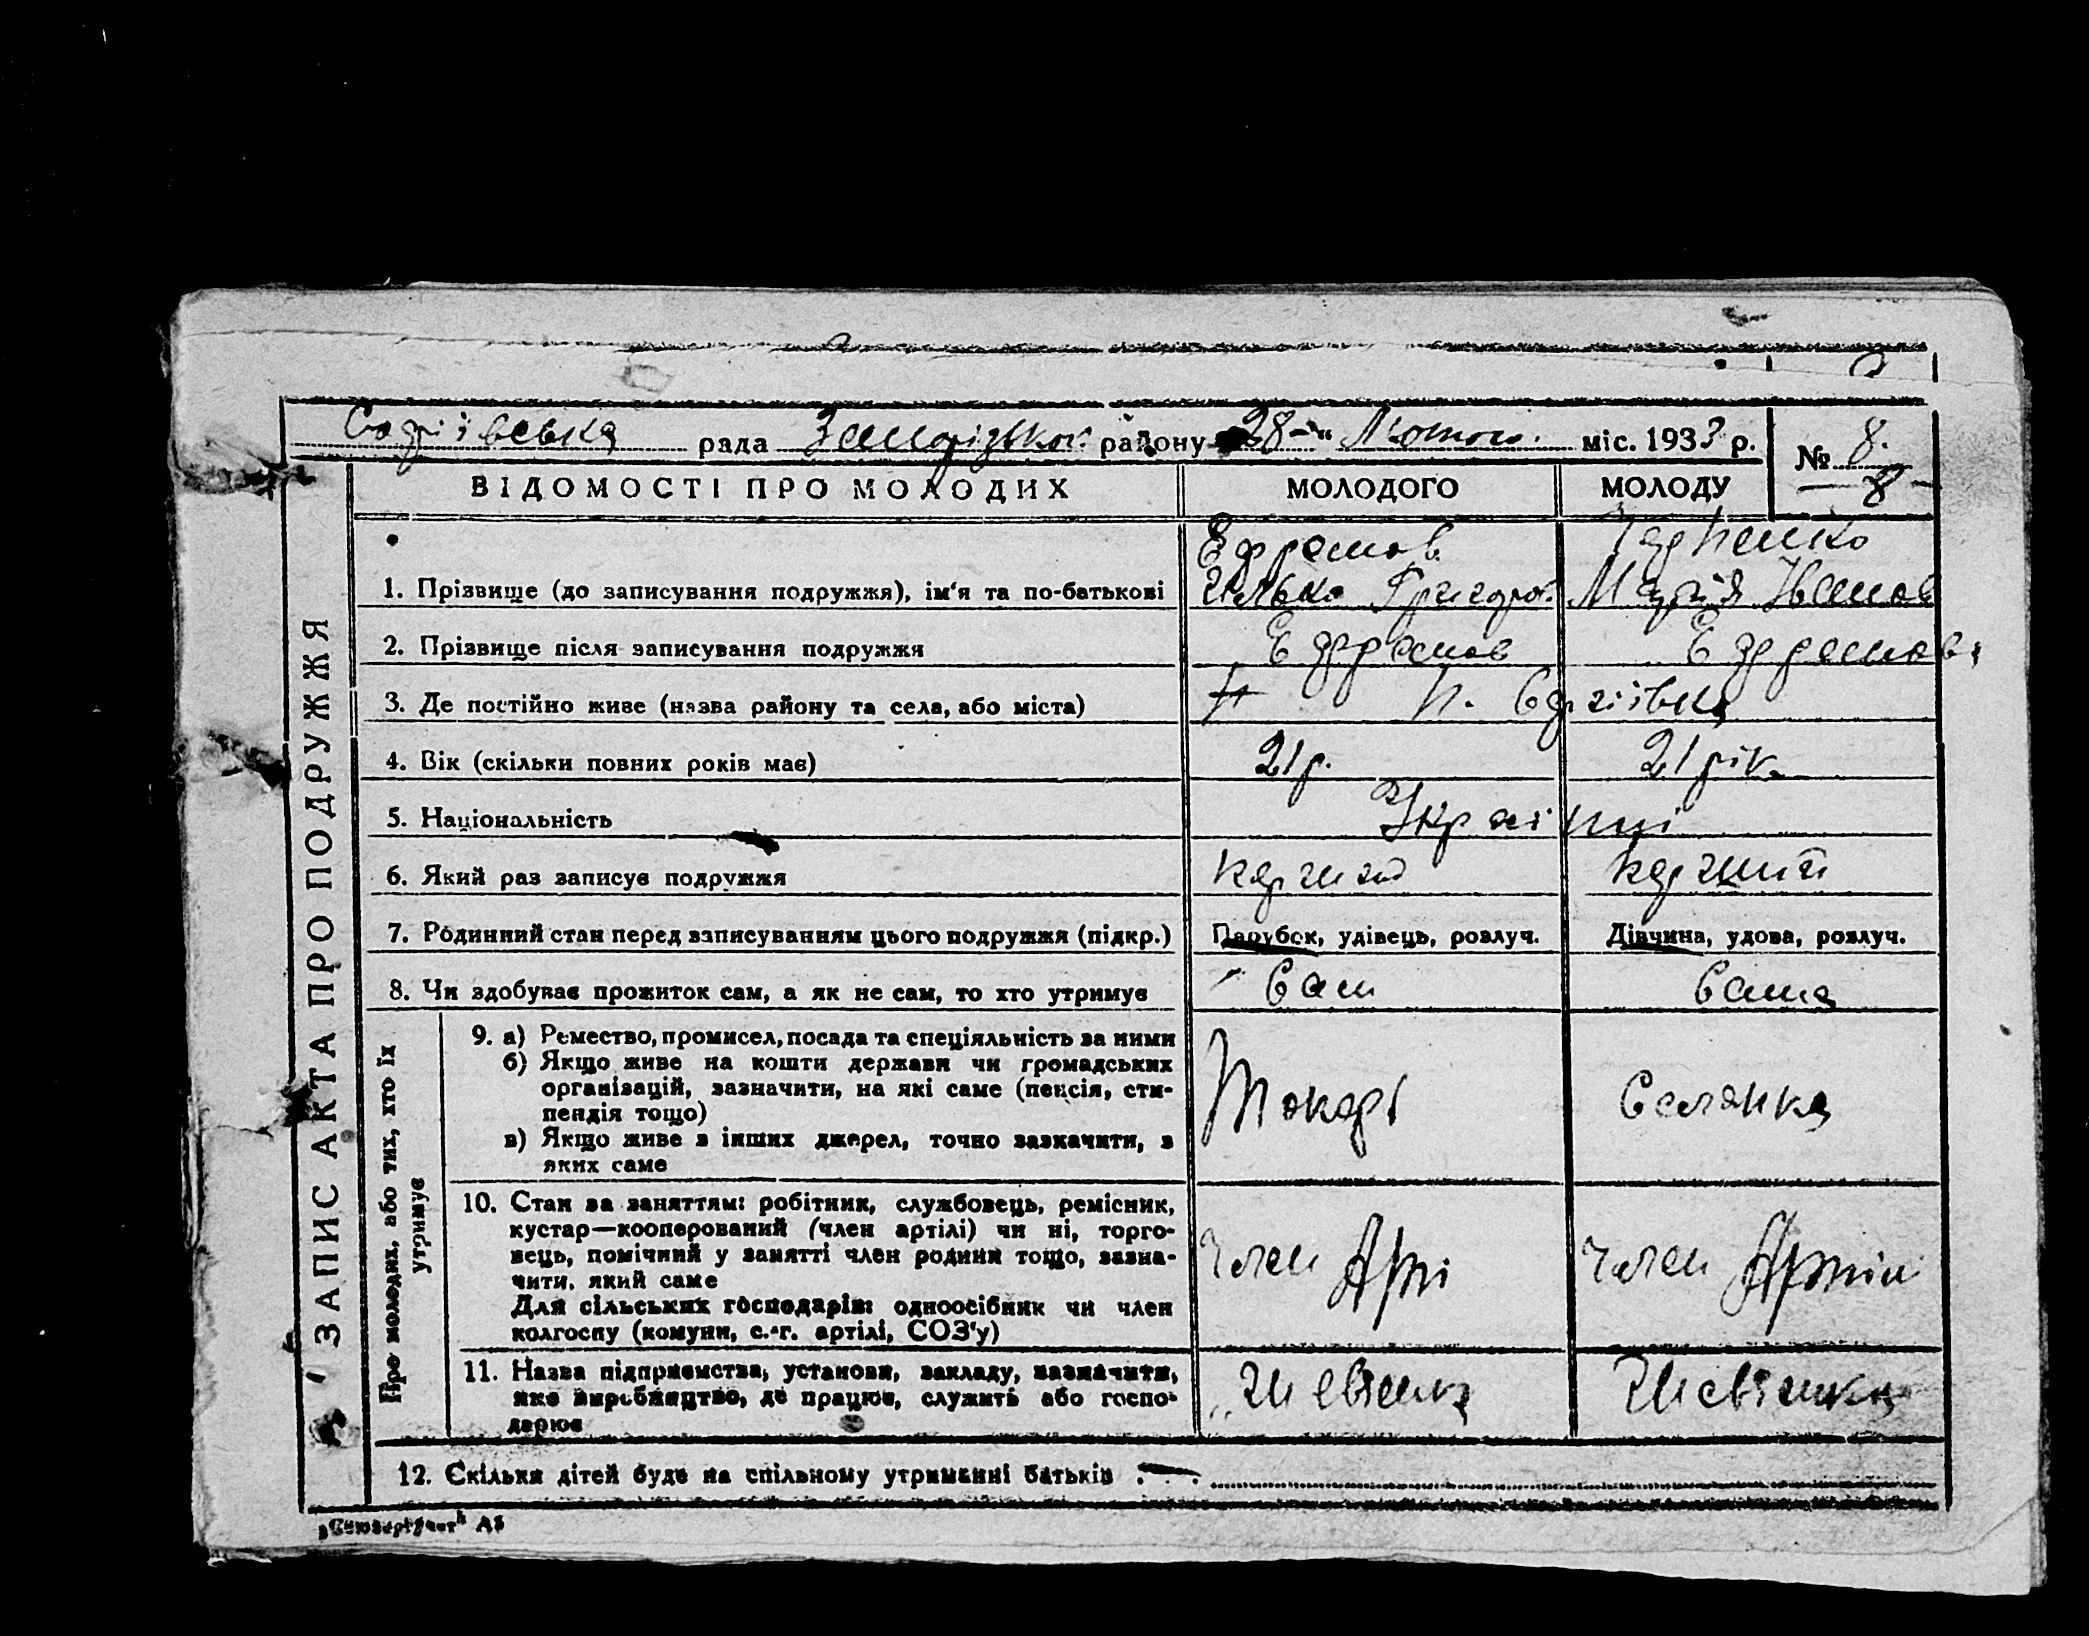 рада Запорізьког району 28 " Лютого міс. 1933 р. № 8.
8
ВІДОМОСТІ ПРО МОЛОДИХ МОЛОДОГО МОЛОДУ
Ефремов
1. Прізвище (до записування подружжя), ім'я та по-батькові Ілько Григоров. Марія Іванов
2. Прізвище після записування подружжя Ефремов Ефремова
3. Де постійно живе (назва району та села, або міста)
4. Вік (скільки повних років має) 21 р. 21 рік
5. Національність Українці
6. Який раз записує подружжя
7. Родинний стан перед записуванням цього подружжя (підкр.) Парубок, удівець, розлуч. Дівчина, удова, розлуч.
8. Чи здобуває прожиток сам, а як не сам, то хто утримує Сам Сама
ЗАПИС АКТА ПРО ПОДРУЖЖЯ
Про молодих, або тих, хто їх
утримує
9. а) Ремество, промисел, посада та спеціяльність за ними
б) Якщо живе на кошти держави чи громадських
організацій, зазначити, на які саме (пенсія, сти-
пендія тощо)
в) Якщо живе з інших джерел, точно зазначити, з
яких саме
Токарь Селянка
10. Стан за заняттям: робітник, службовець, ремісник,
кустар—кооперований (член артілі) чи ні, торго-
вець, помічний у занятті член родини тощо, зазна-
чити, який саме
Для сільських господарів: одноосібник чи член
колгоспу (комуни, с.-г. артілі, СОЗ'у)
член Арті член Артіли
11. Назва підприємства, установи, закладу, зазначити,
яке виробництво, де працює, служить або госпо-
дарює
Шевченка Шевченка
12. Скільки дітей буде на спільному утриманні батьків